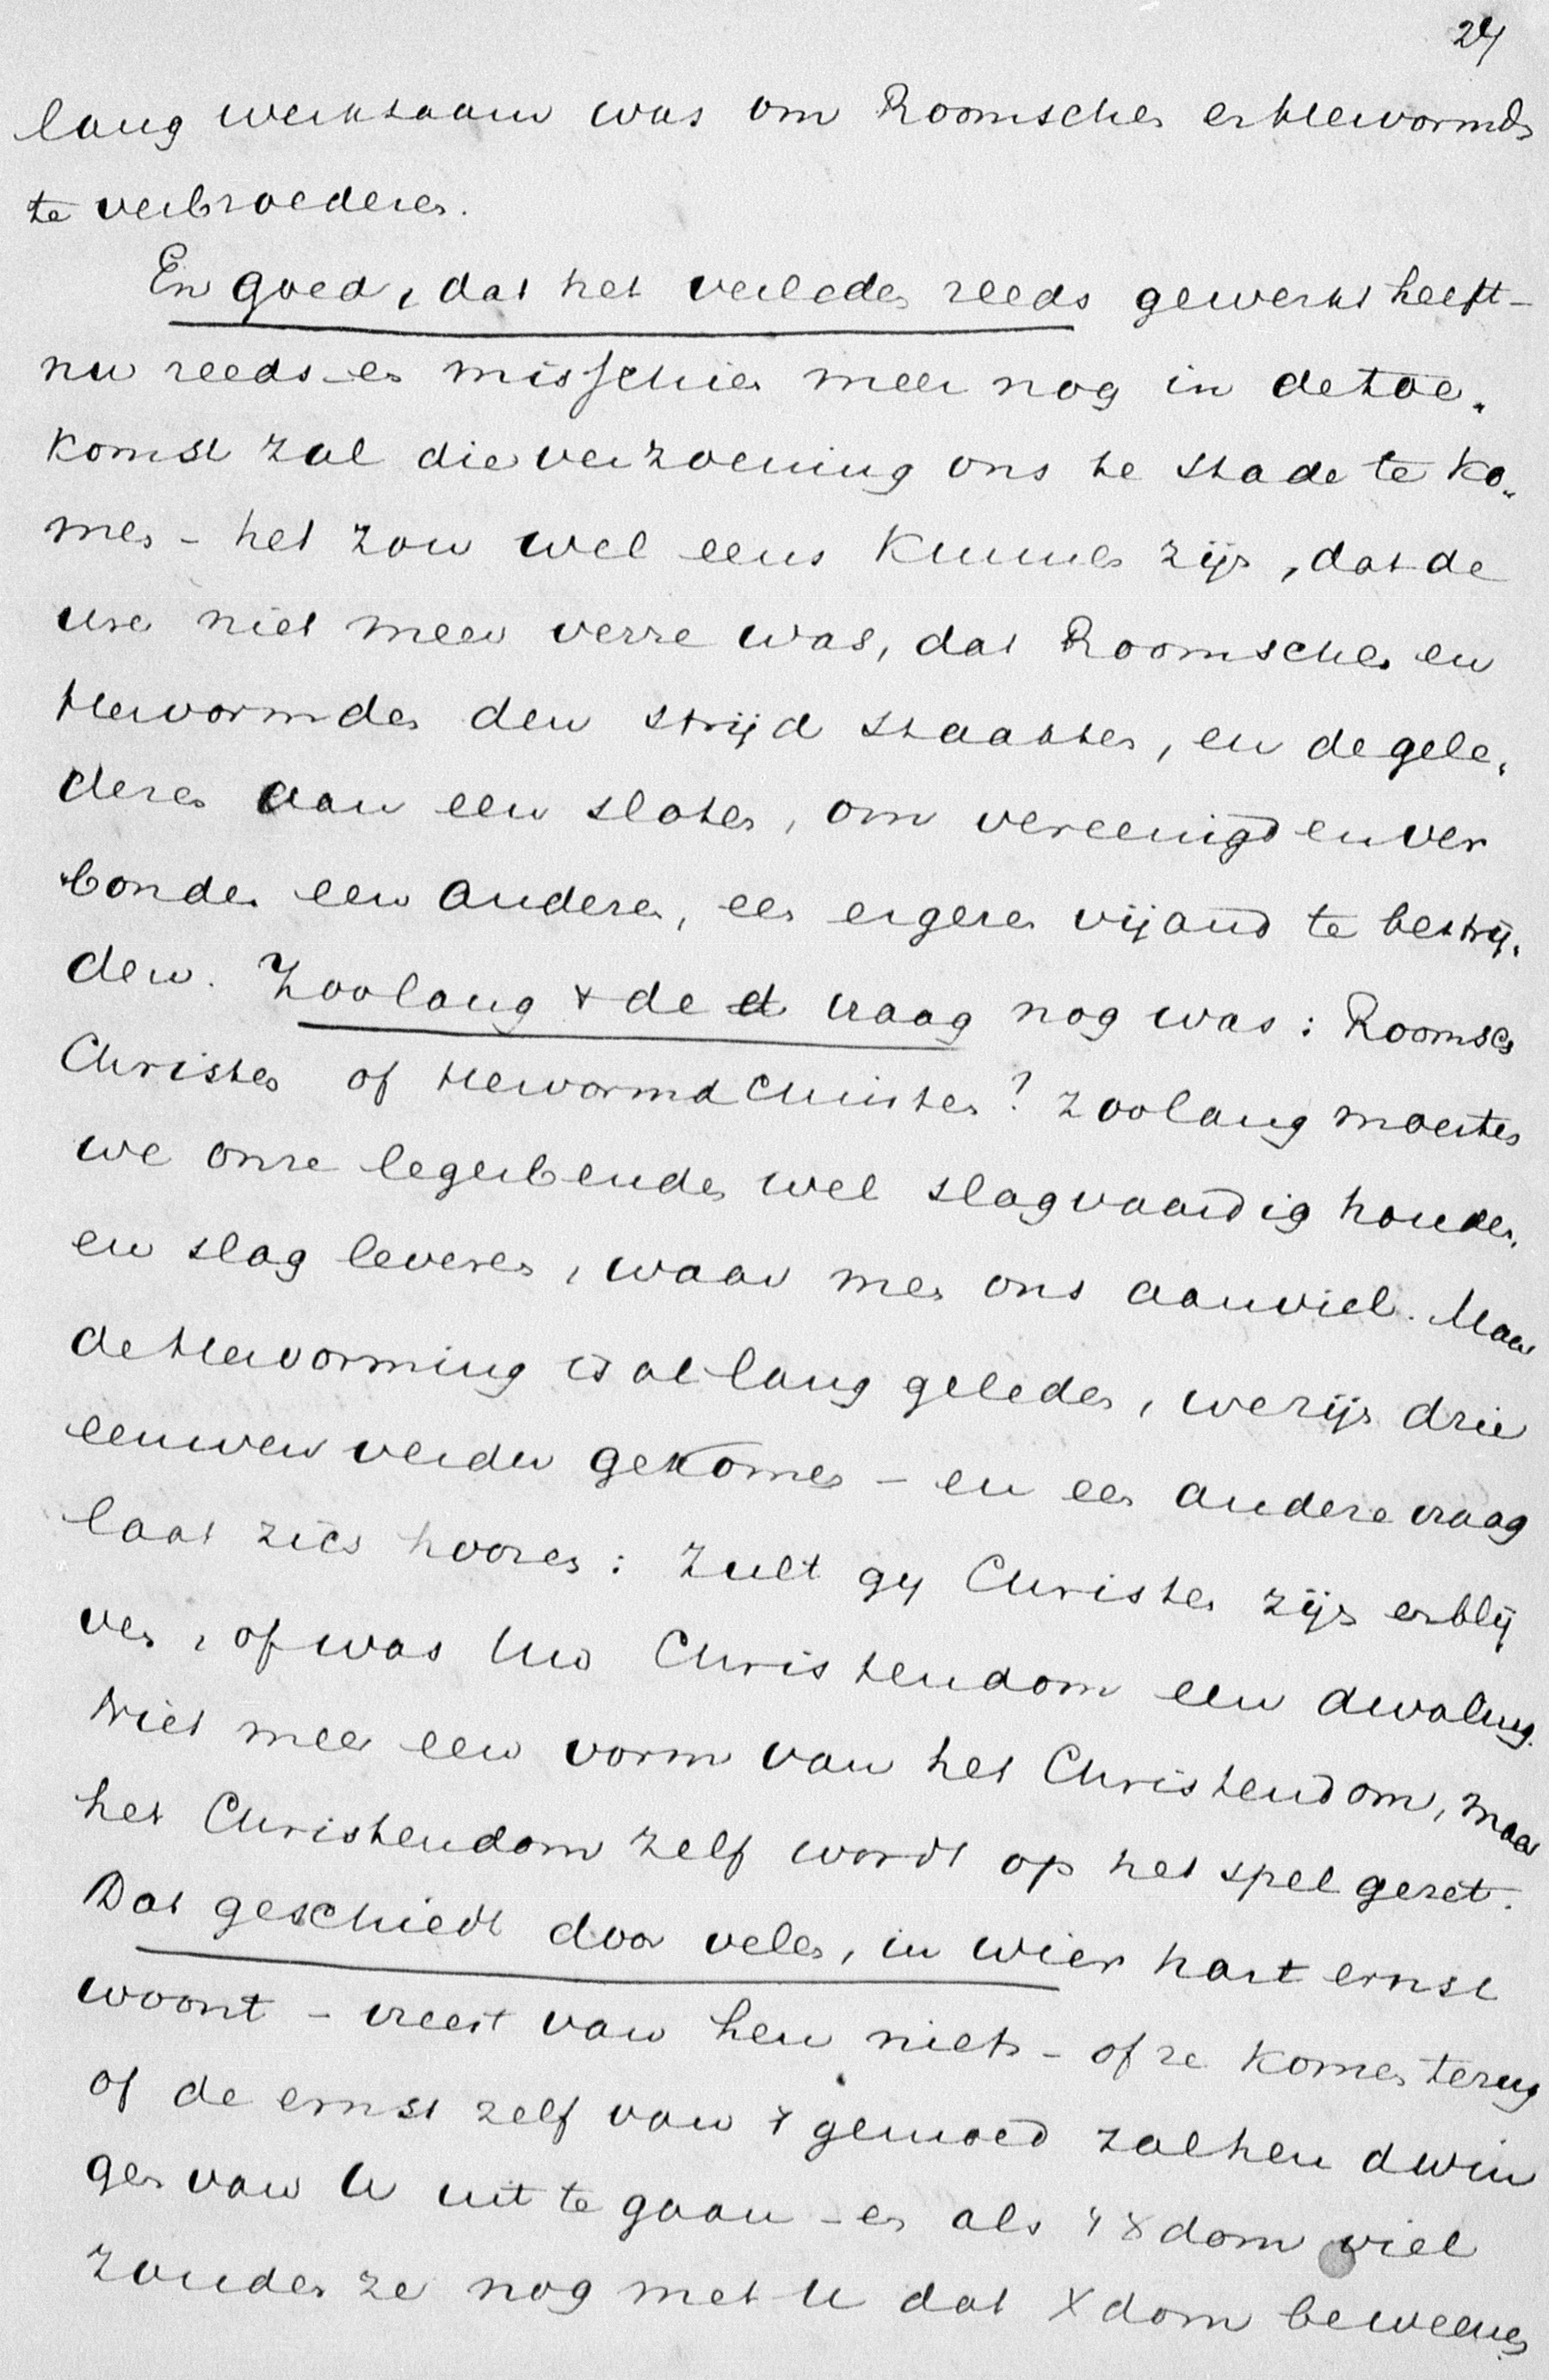 24
lang werkzaam was om Roomschen en Hervormden
te verbroederen.
En goed, dat het verleden reeds gewerkt heeft -
nu reeds - en misschien meer nog in de toe-
komst zal die verzoening ons te stade te ko-
men - het zou wel eens kunnen zijn, dat de
ure niet meer verre was, dat Roomschen en
Hervormden den strijd staakten, en de gele-
deren aan een sloten, om vereenigd en ver
bonden een anderen, een ergeren vijand te bestrij-
den. Zoolang de vraag nog was: Roomsch
Christen of Hervormd Christen? zoolang moesten
we onze legerbenden wel slagvaardig houden,
en slag leveren, waar men ons aanviel. Maar
de Hervorming is al lang geleden, we zijn drie
eeuwen verder gekomen - en een andere vraag
laat zich hooren: Zult gy Christen zijn en blij
ven, of was Uw Christendom een dwaling.
Niet meer een vorm van het Christendom, maar
het Christendom zelf wordt op het spel gezet.
Dat geschiedt door velen, in wier hart ernst
woont - vreest van hen niets - of ze komen terug
of de ernst zelf van 't gemoed zal hen dwin
gen van U uit te gaan - en als 't Xdom viel
zouden ze nog met U dat Xdom beweenen